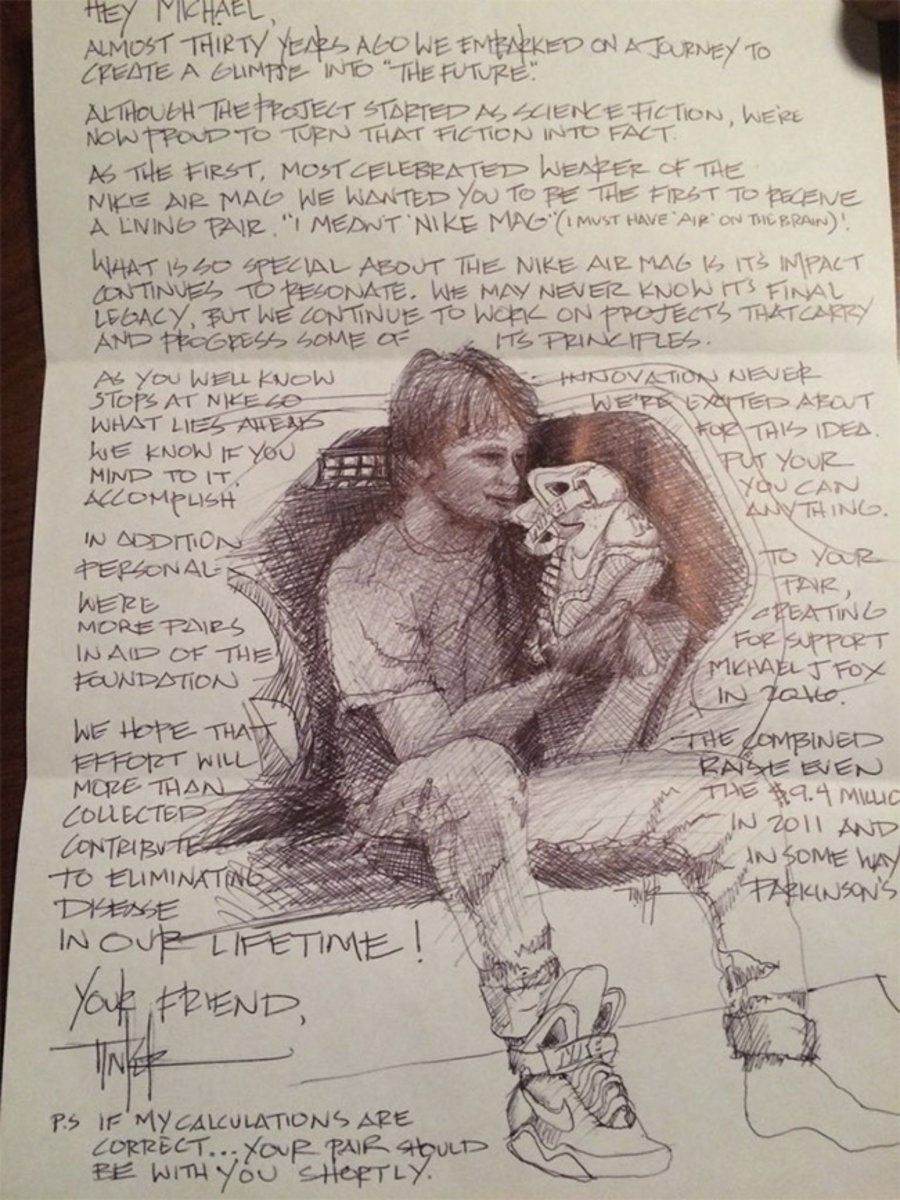 HEY MICHAEL,
ALMOST THIRTY YEARS AGO WE EMBARKED ON A JOURNEY TO
CREATE A GLIMPSE INTO "THE FUTURE".
ALTHOUGH THE PROJECT STARTED AS SCIENCE FICTION, WE'RE
NOW PROUD TO TURN THAT FICTION INTO FACT.
AS THE FIRST, MOST CELEBRATED WEARER OF THE
NIKE AIR MAG WE WANTED YOU TO BE THE FIRST TO RECEIVE
A LIVING PAIR. "I MEANT 'NIKE MAG'" (I MUST HAVE 'AIR' ON THE BRAIN)!
WHAT IS SO SPECIAL ABOUT THE NIKE AIR MAG IS IT'S IMPACT
CONTINUES TO RESONATE. WE MAY NEVER KNOW IT'S FINAL
LEGACY, BUT WE CONTINUE TO WORK ON PROJECTS THAT CARRY
AND PROGRESS SOME OF ITS PRINCIPLES.
AS YOU WELL KNOW INNOVATION NEVER
STOPS AT NIKE SO WE'RE EXCITED ABOUT
WHAT LIES AHEAD FOR THIS IDEA.
WE KNOW IF YOU PUT YOUR
MIND TO IT, YOU CAN
ACCOMPLISH ANYTHING.
IN ADDITION TO YOUR
PERSONAL PAIR,
WERE CREATING
MORE PAIRS FOR SUPPORT
IN AID OF THE MICHAEL J FOX
FOUNDATION IN 2016.
WE HOPE THAT THE COMBINED
EFFORT WILL RAISE EVEN
MORE THAN THE $9.4 MILLIO
COLLECTED IN 2011 AND
CONTRIBUTE IN SOME WAY
TO ELIMINATING PARKINSON'S
DISEASE
IN OUR LIFETIME!
YOUR FRIEND,
TINKER
P.S IF MY CALCULATIONS ARE
CORRECT...YOUR PAIR SHOULD
BE WITH YOU SHORTLY.
NIKE